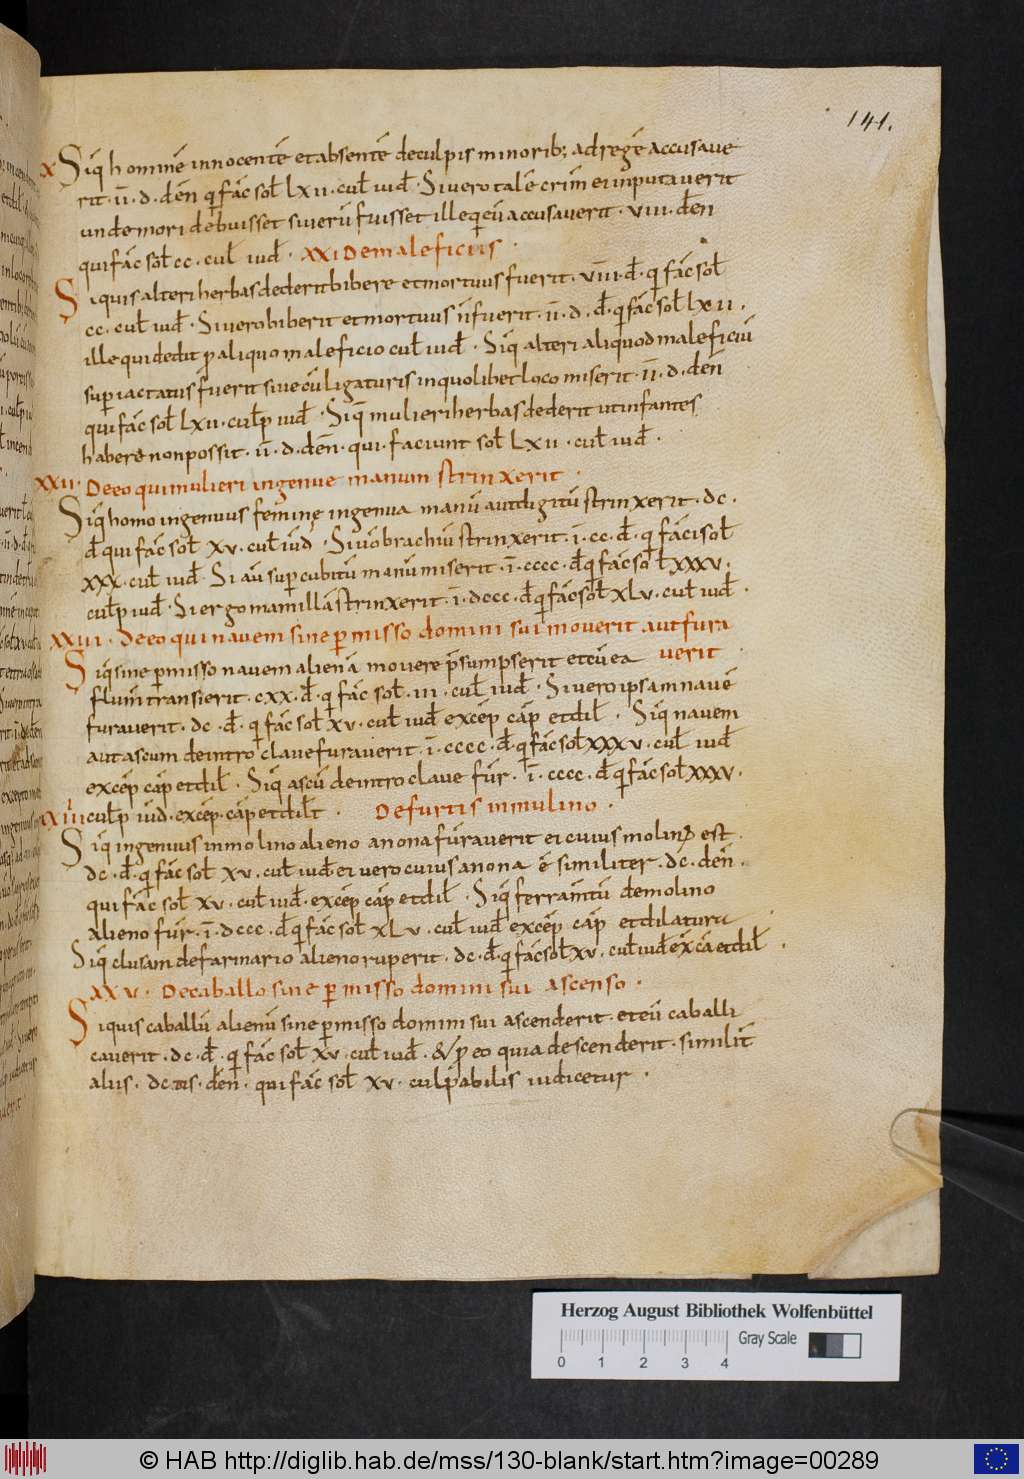 141.
x Siq̄ hominē innocentē et absentē deculpis minorib; adregē accusave
rit· īī·d·den̄ qͥ fac̄ sol̄ lxii·cul̄ iud̄· Sivero talē crim̄ ei inputaverit
unde mori debuisset siverū fuisset ille qͥ eū accusaverit· viii·den̄
qui fac̄ sol̄ cc·cul̄ iud̄· xxi Demaleficiis·
Siquis alteri herbas dederit bibere et mortuus fuerit· viii·d̄·qͥ fac̄ sol̄
cc·cul̄ iud̄· Sivero biberit et mortuus n̄ fuerit· īī·d·d̄·qͥ fac̄ sol̄ lxii·
ille qui dedit ꝑ aliquo maleficio cul̄ iud̄· Siq̄ alteri aliquod maleficiū
suꝑiactatus fuerit sive cū ligaturis inquolibet loco miserit· īī·d·den̄
qui fac̄ sol̄ lxii·culp̄ iud̄· Siq̄ mulieri herbas dederit ut infantes
habere non possit· īī·d·den̄·qui·faciunt sol̄ lxii·cul̄ iud̄·
xxii· Deeo qui mulieri ingenue manum strinxerit·
Siq̄ homo ingenuus femine ingenua manū aut digitū strinxerit·dc·
d̄ qui fac̄ sol̄ xv·cul̄ iud̄· Siv̄o brachiū strinxerit·ī·cc·d̄·qͥ fac̄ sol̄
xxx·cul̄ iud̄· Si aū suꝑ cubitū manū miserit·ī·cccc·d̄ qͥ fac̄ sol̄ xxxv·
culp̄ iud̄· Si ergo mamillā strinxerit·ī·dccc·d̄ qͥ fac̄ sol̄ xlv·cul̄ iud̄·
xxiii· Deeo qui navem sine ꝑmisso domini sui moverit aut fura
Siq̄ sine ꝑmisso navem alienā movere p̄sumpserit et cū ea verit·
flum̄ transierit·cxx·d̄·qͥ fac̄ sol̄·iii·cul̄ iud̄· Sivero ipsam navē
furaverit·dc·d̄·qͥ fac̄ sol̄ xv·cul̄ iud̄ excep̄ cap̄ et dil̄· Siq̄ navem
aut ascum deintro clave furaverit·ī·cccc·d̄ qͥ fac̄ sol̄ xxxv·cul̄ iud̄
excep̄ cap̄ et dil̄· Siq̄ ascū deintro clave fur̄·ī·cccc·d̄ qͥ fac̄ sol̄ xxxv·
culp̄ iud̄·excep̄·cap̄ et dil̄t· Defurtis inmulino·
Siq̄ ingenuus inmolino alieno anona furaverit ei cuius molinꝰ est·
dc·d̄·qͥ fac̄ sol̄ xv·cul̄ iud̄ ei vero cuius anona ē similiter·dc·den̄·
qui fac̄ sol̄ xv·cul̄ iud̄·excep̄ cap̄ et dil̄· Siq̄ ferram̄tū demolino
alieno fur̄·ī·dccc·d̄ qͥ fac̄ sol̄ xlv·cul̄ iud̄ excep̄ cap̄ et dilatura
Siq̄ clusam defarinario alieno ruperit·dc·d̄ qͥ fac̄ sol̄ xv·cul̄ iud̄ ex̄ ca et dil̄·
xxv· Decaballo sine ꝑmisso domini sui ascenso·
Siquis caballū alienū sine ꝑmisso domini sui ascenderit·et eū caballi
caverit·dc·d̄·qͥ fac̄ sol̄ xv·cul̄ iud̄·& ꝓ eo quia descenderit·similit̄
aliis·dctis·den̄·qui fac̄ sol̄ xv·culpabilis iudicetur·
Herzog August Bibliothek Wolfenbüttel
Gray Scale
0 1 2 3 4
© HAB http://diglib.hab.de/mss/130-blank/start.htm?image=00289